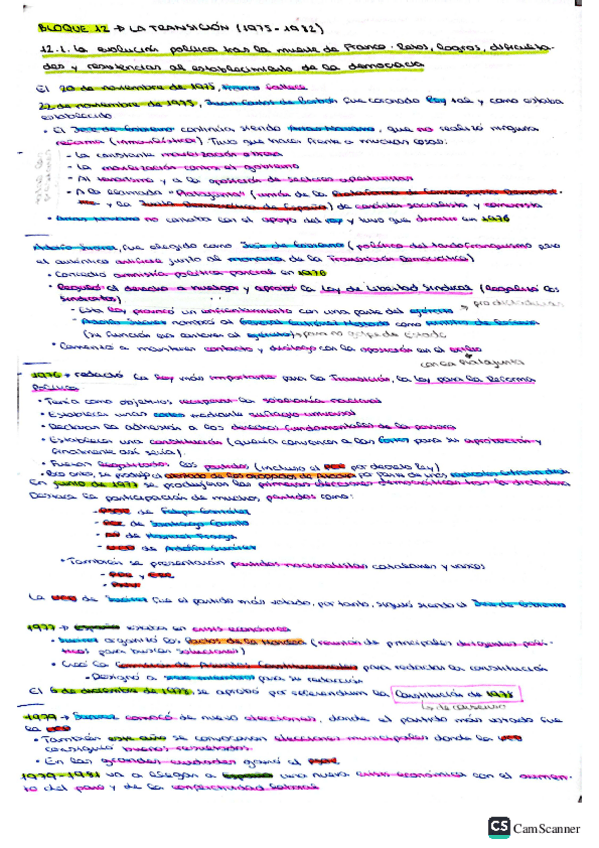 BLOQUE 12 → LA TRANSICIÓN (1975-1982)
12.1. La evolución política tras la muerte de Franco. Retos, logros, dificulta-
des y resistencias al establecimiento de la democracia
El 20 de noviembre de 1975, Franco fallece
22 de noviembre de 1975, Juan Carlos de Borbón fue coronado Rey tal y como estaba
establecido
• El Jefe de Gobierno continúa siendo Arias Navarro, que no realizó ninguna
reforma (inmovilista). Tuvo que hacer frente a muchas cosas:
- La constante movilización obrera
- La movilización contra el gobierno
- Al terrorismo y a la oposición de sectores
- A la llamada "Platajunta" (unión de la Plataforma de Convergencia Democrát-
ica y la Junta Democrática de España) de carácter socialista y comunista
• Arias Navarro no contaba con el apoyo del rey y tuvo que dimitir en 1976
Adolfo Suárez, fue elegido como Jefe de Gobierno (político del tardofranquismo pero
el auténtico artífice junto al monarca de la Transición Democrática)
• Concedió amnistía política parcial en 1976
• Reguló el derecho a huelga y aprobó la Ley de Libertad Sindical (legalizó los
sindicatos)
- Esta ley provocó un enfrentamiento con una parte del ejército →
- Adolfo Suárez nombró al General Gutiérrez Mellado como ministro de Defensa
(su función era contener al ejército) → para no golpe de Estado
• Comenzó a mantener contacto y diálogo con la oposición en el exilio
con la Platajunta
1976 → redactó la ley más importante para la Transición, la Ley para la Reforma
Política
• Tenía como objetivos recuperar la soberanía nacional
• Establecer unas cortes mediante sufragio universal
• Declaran la adhesión a los derechos fundamentales de la persona
• Establecer una constitución (quería convencer a las Cortes para su aprobación y
finalmente así sería).
• Fueron legalizados los partidos (incluso el PCE por decreto ley)
• Por ello, se produjo el atentado de los abogados de Atocha por parte de unos
En junio de 1977 se produjeron las primeras elecciones democráticas tras la dictadura
Destaca la participación de muchos partidos como:
- PSOE de Felipe González
- PCE de Santiago Carrillo
- AP de Manuel Fraga
- UCD de Adolfo Suárez
• También se presentaron partidos nacionalistas catalanes y vascos
La UCD de Suárez fue el partido más votado, por tanto, siguió siendo el Jefe de Gobierno
1977 → España estaba en crisis económica
• Suárez organizó los Pactos de la Moncloa (reunión de principales dirigentes polí-
ticos para buscar soluciones)
• Creó la Comisión de Asuntos Constitucionales para redactar la constitución
• Designó a para su redacción
El 6 de diciembre de 1978, se aprobó por referendum la Constitución de 1978
↳ de consenso
1979 → Suárez convocó de nuevo elecciones, donde el partido más votado fue
la UCD
• También este año se convocaron elecciones municipales donde la UCD
consiguió buenos resultados.
• En las grandes ciudades ganó el PSOE
1979-1981 va a llegar a España una nueva crisis económica con el aumen-
to del paro y de la conflictividad laboral
CS CamScanner